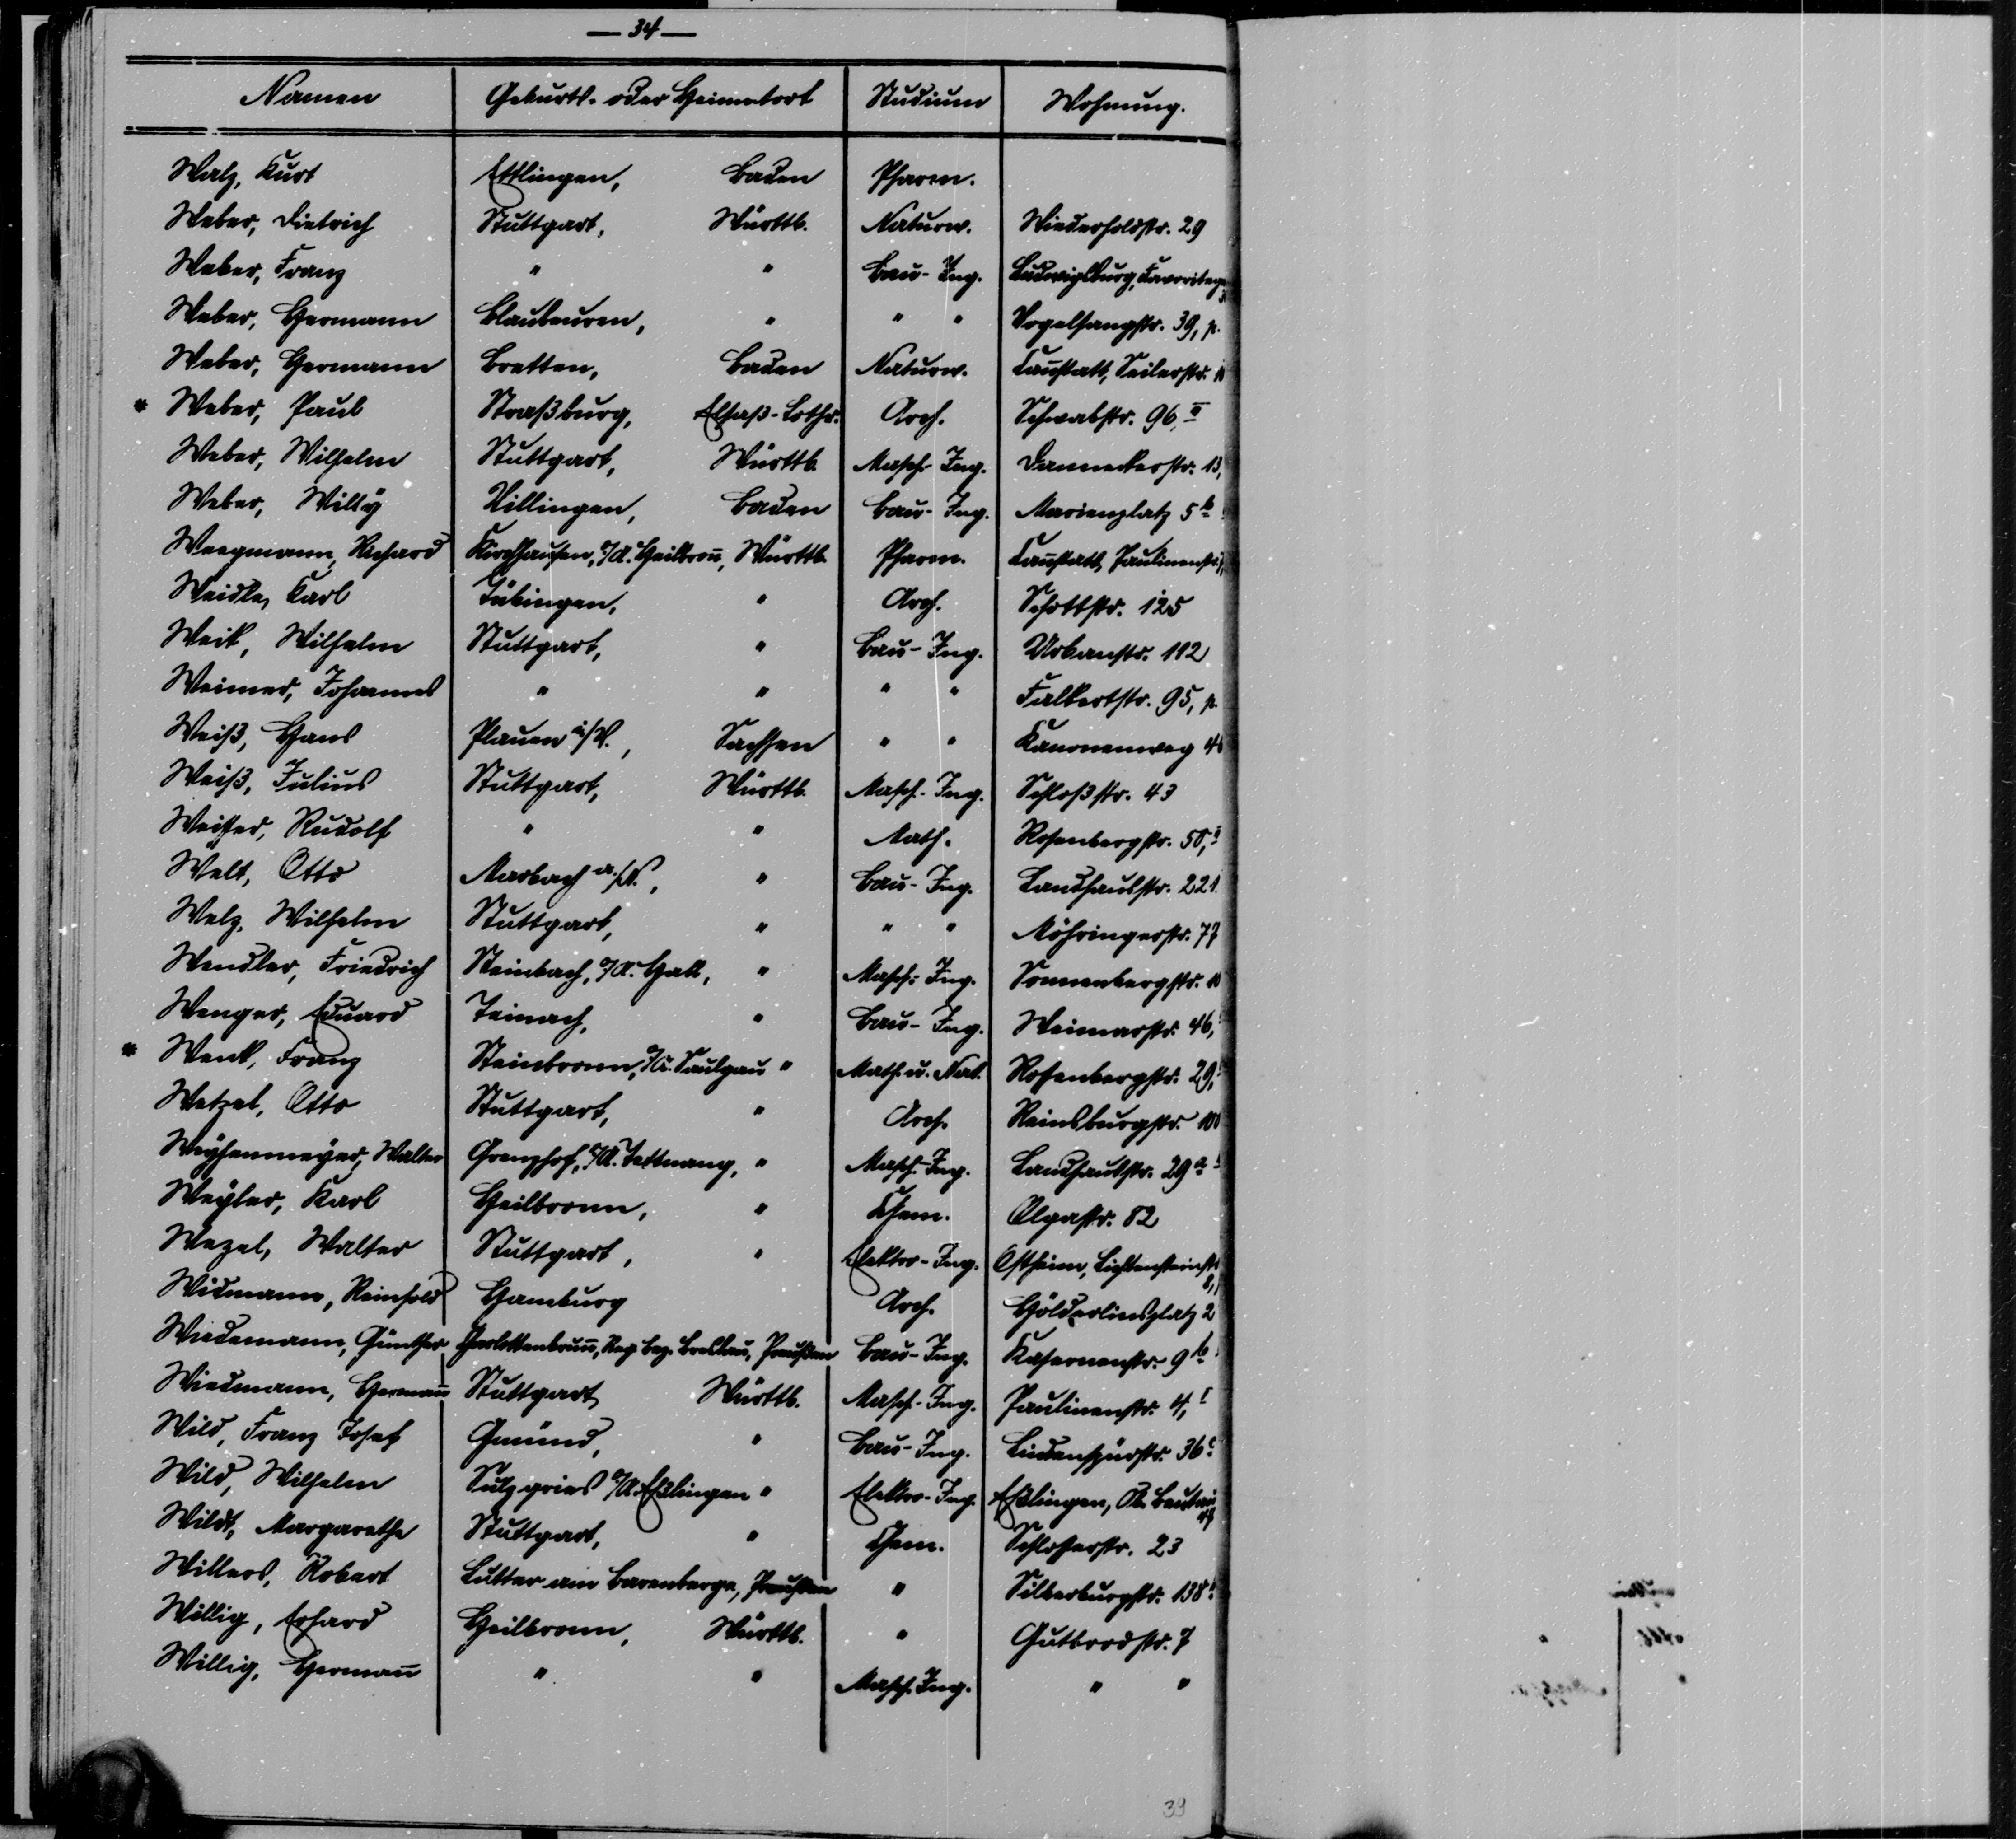 — 34 —
Namen Geburts- oder Heimatort Studium Wohnung.
Walz, Kurt Ettlingen, Baden Pharm.
Weber, Dietrich Stuttgart, Württb. Naturw. Wiederholdstr. 29
Weber, Franz " " Bau-Ing. Ludwigsburg, Favoritega
Weber, Hermann Blaubeuren, " " " Vogelsangstr. 39, p.
Weber, Hermann Bretten, Baden Naturw. Canstatt, Seilerstr.
* Weber, Paul Straßburg, Elsaß-Lothr. Arch. Schwabstr. 96, II
Weber, Wilhelm Stuttgart, Württb. Masch-Ing. Danneckerstr. 13,
Weber, Willy Villingen, Baden Bau-Ing. Marienplatz 5 b
Weegmann, Richard Kirchhausen, O/A. Heilbron̄, Württb. Pharm. Can̄statt, Paulinenstr.
Weidle, Karl Tübingen, " Arch. Schottstr. 125
Weik, Wilhelm Stuttgart, " Bau-Ing. Urbanstr. 112
Weimer, Johannes " " " " Falkertstr. 95, p.
Weiß, Hans Plauen i/V., Sachsen " " Kanonenweg
Weiß, Julius Stuttgart, Württb. Masch-Ing. Schloßstr. 43
Weisser, Rudolf " " Math. Rosenbergstr. 50, II
Welt, Otto Marbach a./N., " Bau-Ing. Landhausstr. 221
Welz, Wilhelm Stuttgart, " " " Möhringerstr. 77
Wendler, Friedrich Steinbach, O/A. Hall, " Masch-Ing. Sonnenbergstr.
Wenger, Eduard Teinach, " Bau-Ing. Weimarstr. 46,
* Wenk, Franz Steinbronn, O/A. Saulgau " Math. u. Nat. Rosenbergstr. 29,
Wetzel, Otto Stuttgart, " Arch. Reinsburgstr.
Weyhenmeyer, Walter Grenzhof, O/A. Tettnang, " Masch-Ing. Landhausstr. 29 a
Weyler, Karl Heilbronn, " Chem. Olgastr. 82
Wezel, Walter Stuttgart, " Elektro-Ing. Ostheim, Lichtensteinstr. 8,
Widmann, Reinhold Hamburg Arch. Hölderlinsplatz 2
Wiedemann, Günther Charlottenbrun̄, Reg. Bez. Breslau, Preußen Bau-Ing. Kasernenstr. 9 b
Wiedmann, Herman̄ Stuttgart, Württb. Masch-Ing. Paulinenstr. 4, I
Wild, Franz Josef Gmünd, " Bau-Ing. Lindenspürstr. 36
Wild, Wilhelm Sulzgries O/A. Eßlingen " Elektro-Ing. Eßlingen, Ob. Beutau
Wildt, Margarethe Stuttgart, " Chem. Schlosserstr. 23
Willers, Robert Lutter am Barenberge, Preußen " Silberburgstr. 138
Willig, Erhard Heilbronn, Württb. " Gutbrodstr. 7
Willig, Herman̄ " " Masch.Ing. " "
39